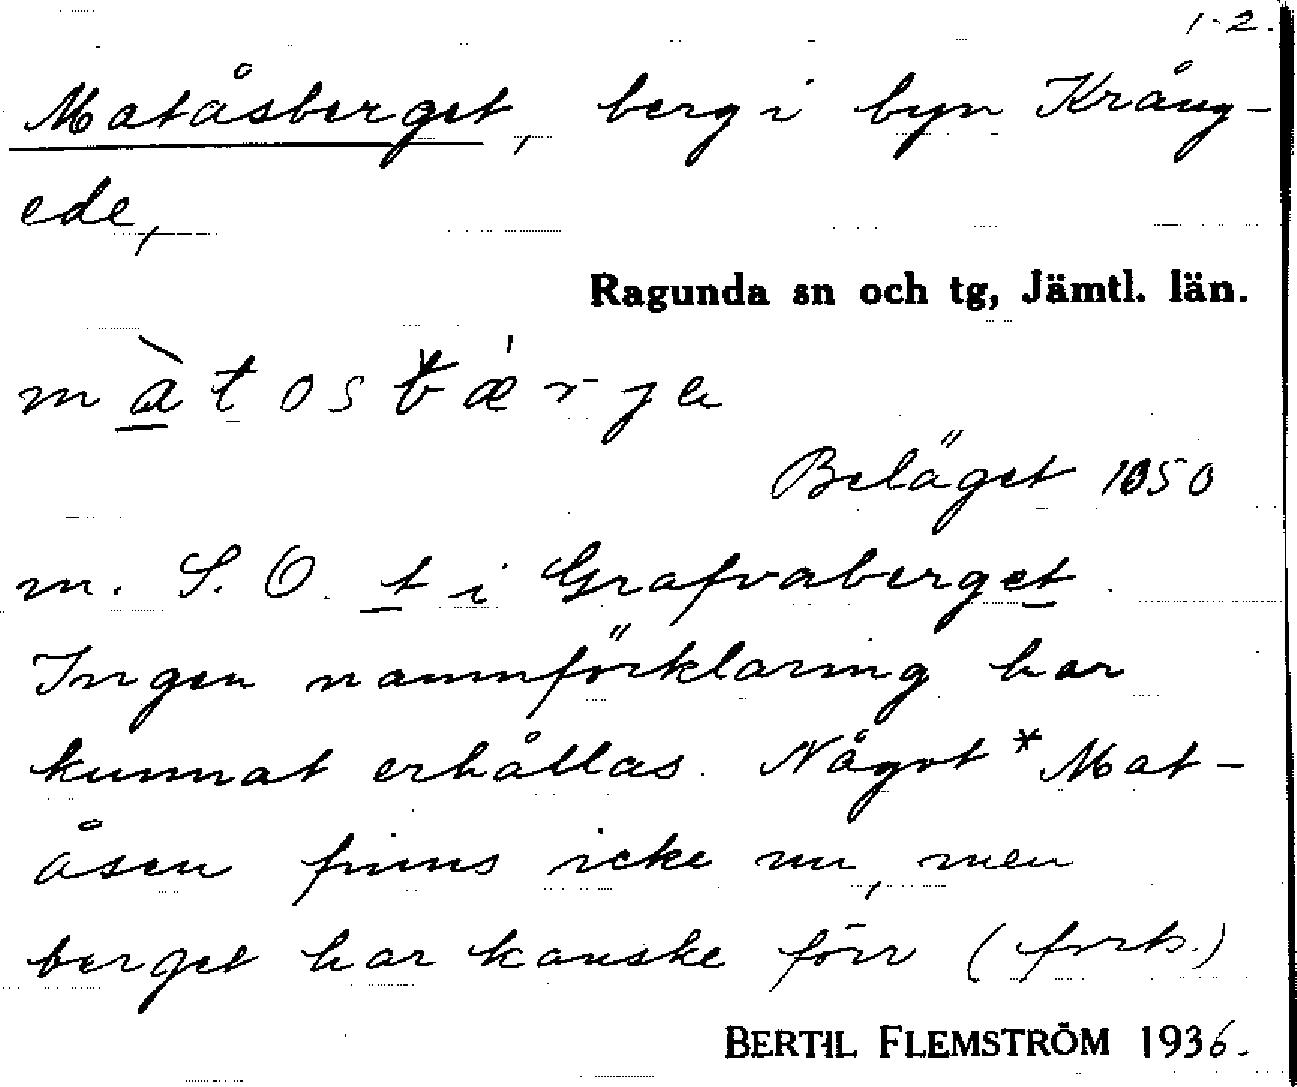 1-2.
Matåsberget, berg i byn Krång-
ede,
Ragunda sn och tg, Jämtl. län.
màtosbǽrje
Beläget 1050
m. S.O. t i Grafvaberget.
Ingen namnförklaring har
kunnat erhållas. Något *Mat-
åsen finns icke nu, men
berget har kanske förr (forts.)
BERTIL FLEMSTRÖM 1936.